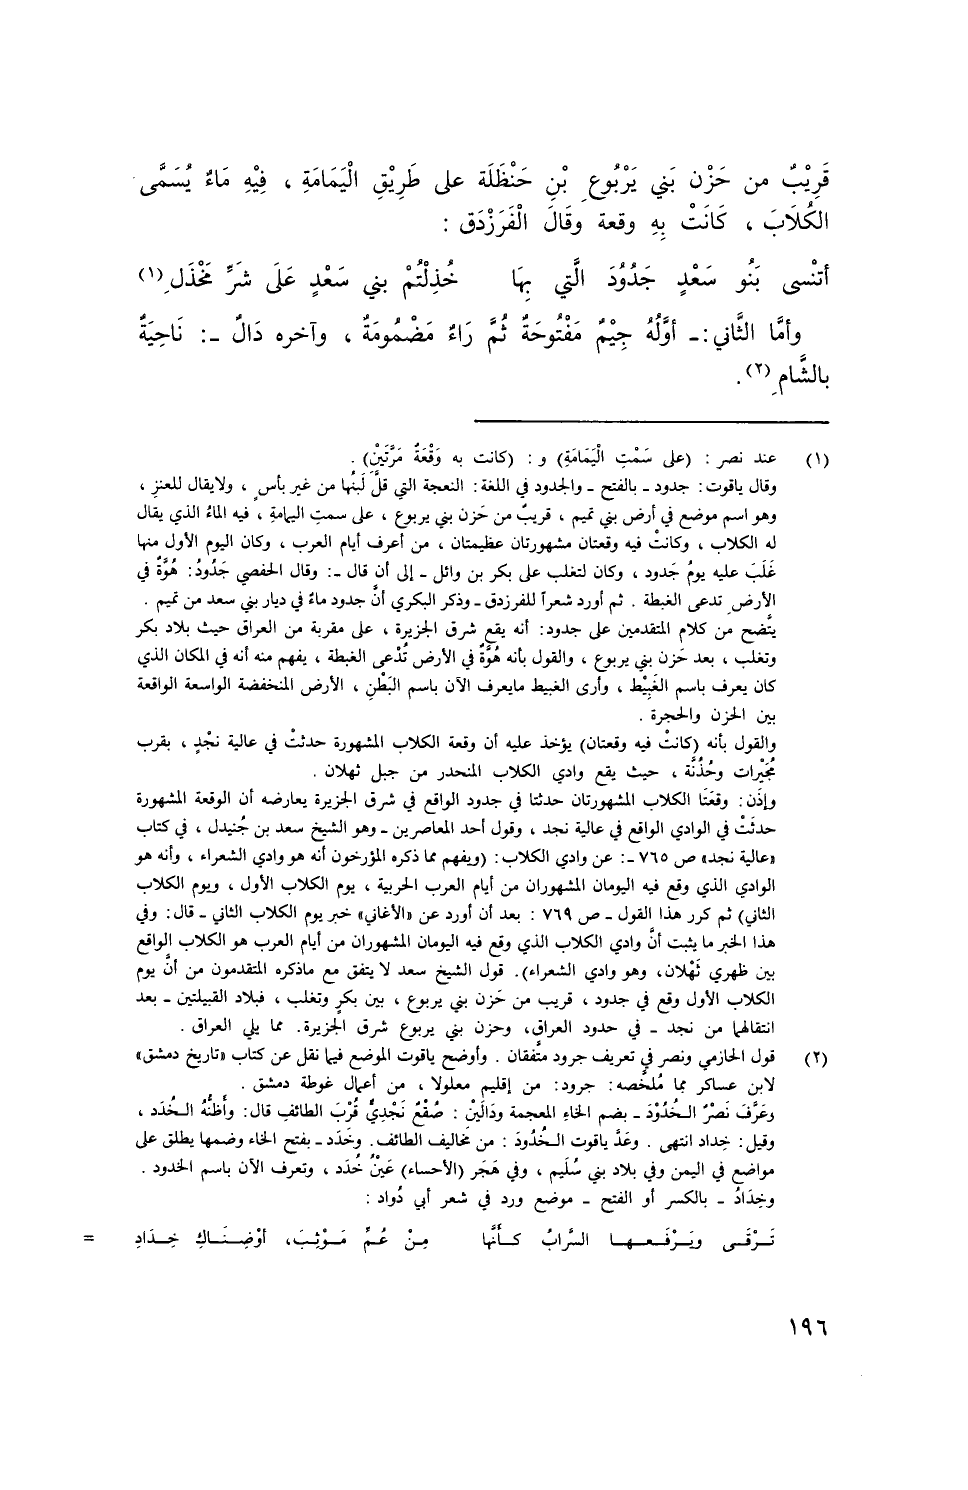 قَرِيْبٌ من حَزْن بَني يَرْبُوعٍ بْنِ حَنْظَلَة على طَرِيْقِ الْيَمَامَةِ ، فِيْهِ مَاءٌ يُسَمَّى
الكُلَابَ ، كَانَتْ بِهِ وقعة وقَالَ الْفَرَزْدَق :
أتنْسى بَنُو سَعْدٍ جَدُوْدَ الَّتي بِهَا خُذِلْتُمْ بني سَعْدٍ عَلَى شَرِّ مَخْذَلِ(١)
وأمَّا الثَّاني :ـ أوَّلُهُ جِيْمٌ مَفْتُوحَةٌ ثُمَّ رَاءٌ مَضْمُومَةٌ ، وآخره دَالٌ ـ: نَاحِيَةٌ
بالشَّامِ(٢).
(١) عند نصر : (على سَمْتِ الْيَمَامَةِ) و : (كانت به وَقْعَةٌ مَرَّتَيْنِ) .
وقال ياقوت : جدود ـ بالفتح ـ والجدود في اللغة : النعجة التي قلَّ لَبنُها من غير بأسٍ ، ولايقال للعنز ،
وهو اسم موضع في أرض بني تميم ، قريبٌ من حَزن بني يربوع ، على سمتِ اليمامة ، فيه الماءُ الذي يقال
له الكلاب ، وكانتْ فيه وقعتان مشهورتان عظيمتان ، من أعرف أيام العرب ، وكان اليوم الأول منها
غَلَبَ عليه يومُ جَدود ، وكان لتغلب على بكر بن وائل ـ إلى أن قال ـ: وقال الحفصي جَدُودُ : هُوَّةٌ في
الأرضِ تدعى الغبطة . ثم أورد شعراً للفرزدق ـ وذكر البكري أنَّ جدود ماءٌ في ديار بني سعد من تميم .
يتَّضح من كلام المتقدمين على جدود : أنه يقع شرق الجزيرة ، على مقربة من العراق حيث بلاد بكر
وتغلب ، بعد حَزن بني يربوع ، والقول بأنه هُوَّةٌ في الأرض تُدْعى الغبطة ، يفهم منه أنه في المكان الذي
كان يعرف باسم الغَبِيْط ، وأرى الغبيط مايعرف الآن باسم البَطْنِ ، الأرض المنخفضة الواسعة الواقعة
بين الحزن والحجرة .
والقول بأنه (كانتْ فيه وقعتان) يؤخذ عليه أن وقعة الكلاب المشهورة حدثتْ في عالية نجْدٍ ، بقرب
مُجَيْرات وخُذُنَّة ، حيث يقع وادي الكلاب المنحدر من جبل ثهلان .
وإذَن : وقعَتَا الكلاب المشهورتان حدثتا في جدود الواقع في شرق الجزيرة يعارضه أن الوقعة المشهورة
حدثَتْ في الوادي الواقع في عالية نجد ، وقول أحد المعاصرين ـ وهو الشيخ سعد بن جُنيدل ، في كتاب
«عالية نجد» ص ٧٦٥ ـ: عن وادي الكلاب : (ويفهم مما ذكره المؤرخون أنه هو وادي الشعراء ، وأنه هو
الوادي الذي وقع فيه اليومان المشهوران من أيام العرب الحربية ، يوم الكلاب الأول ، ويوم الكلاب
الثاني) ثم كرر هذا القول ـ ص ٧٦٩ : بعد أن أورد عن «الأغاني» خبر يوم الكلاب الثاني ـ قال : وفي
هذا الخبر ما يثبت أنَّ وادي الكلاب الذي وقع فيه اليومان المشهوران من أيام العرب هو الكلاب الواقع
بين ظهري ثَهْلان، وهو وادي الشعراء). قول الشيخ سعد لا يتفق مع ماذكره المتقدمون من أنَّ يوم
الكلاب الأول وقع في جدود ، قريب من حَزن بني يربوع ، بين بكرٍ وتغلب ، فبلاد القبيلتين ـ بعد
انتقالهما من نجد ـ في حدود العراق، وحزن بني يربوع شرق الجزيرة. مما يلي العراق .
(٢) قول الحازمي ونصر في تعريف جرود متَّفقان . وأوضح ياقوت الموضع فيما نقل عن كتاب «تاريخ دمشق»
لابن عساكر بما مُلخَّصه : جرود : من إقليم معلولا ، من أعمال غوطة دمشق .
وعَرَّفَ نَصْرٌ الـخُدُوْدَ ـ بضم الخاء المعجمة ودَالَيْنْ : صُقْعٌ نَجْدِيٌّ قُرْبَ الطائف قال : وأظُنُّهُ الـخُدَد ،
وقيل : خِداد انتهى . وعَدَّ ياقوت الـخُدُودَ : من مخاليف الطائف. وخَدَد ـ بفتح الخاء وضمها يطلق على
مواضع في اليمن وفي بلاد بني سُلَيم ، وفي هَجَر (الأحساء) عَيْنُ خُدَد ، وتعرف الآن باسم الخدود .
وخِدَادُ ـ بالكسر أو الفتح ـ موضع ورد في شعر أبي دُواد :
تَـرْقَـى ويَـرْفَـعـهـا السَّرابُ كـأنَّها مِـنْ عُـمِّ مَـوْثِـبَ، أوْضِـنَـاكِ خِـدَادِ =
١٩٦